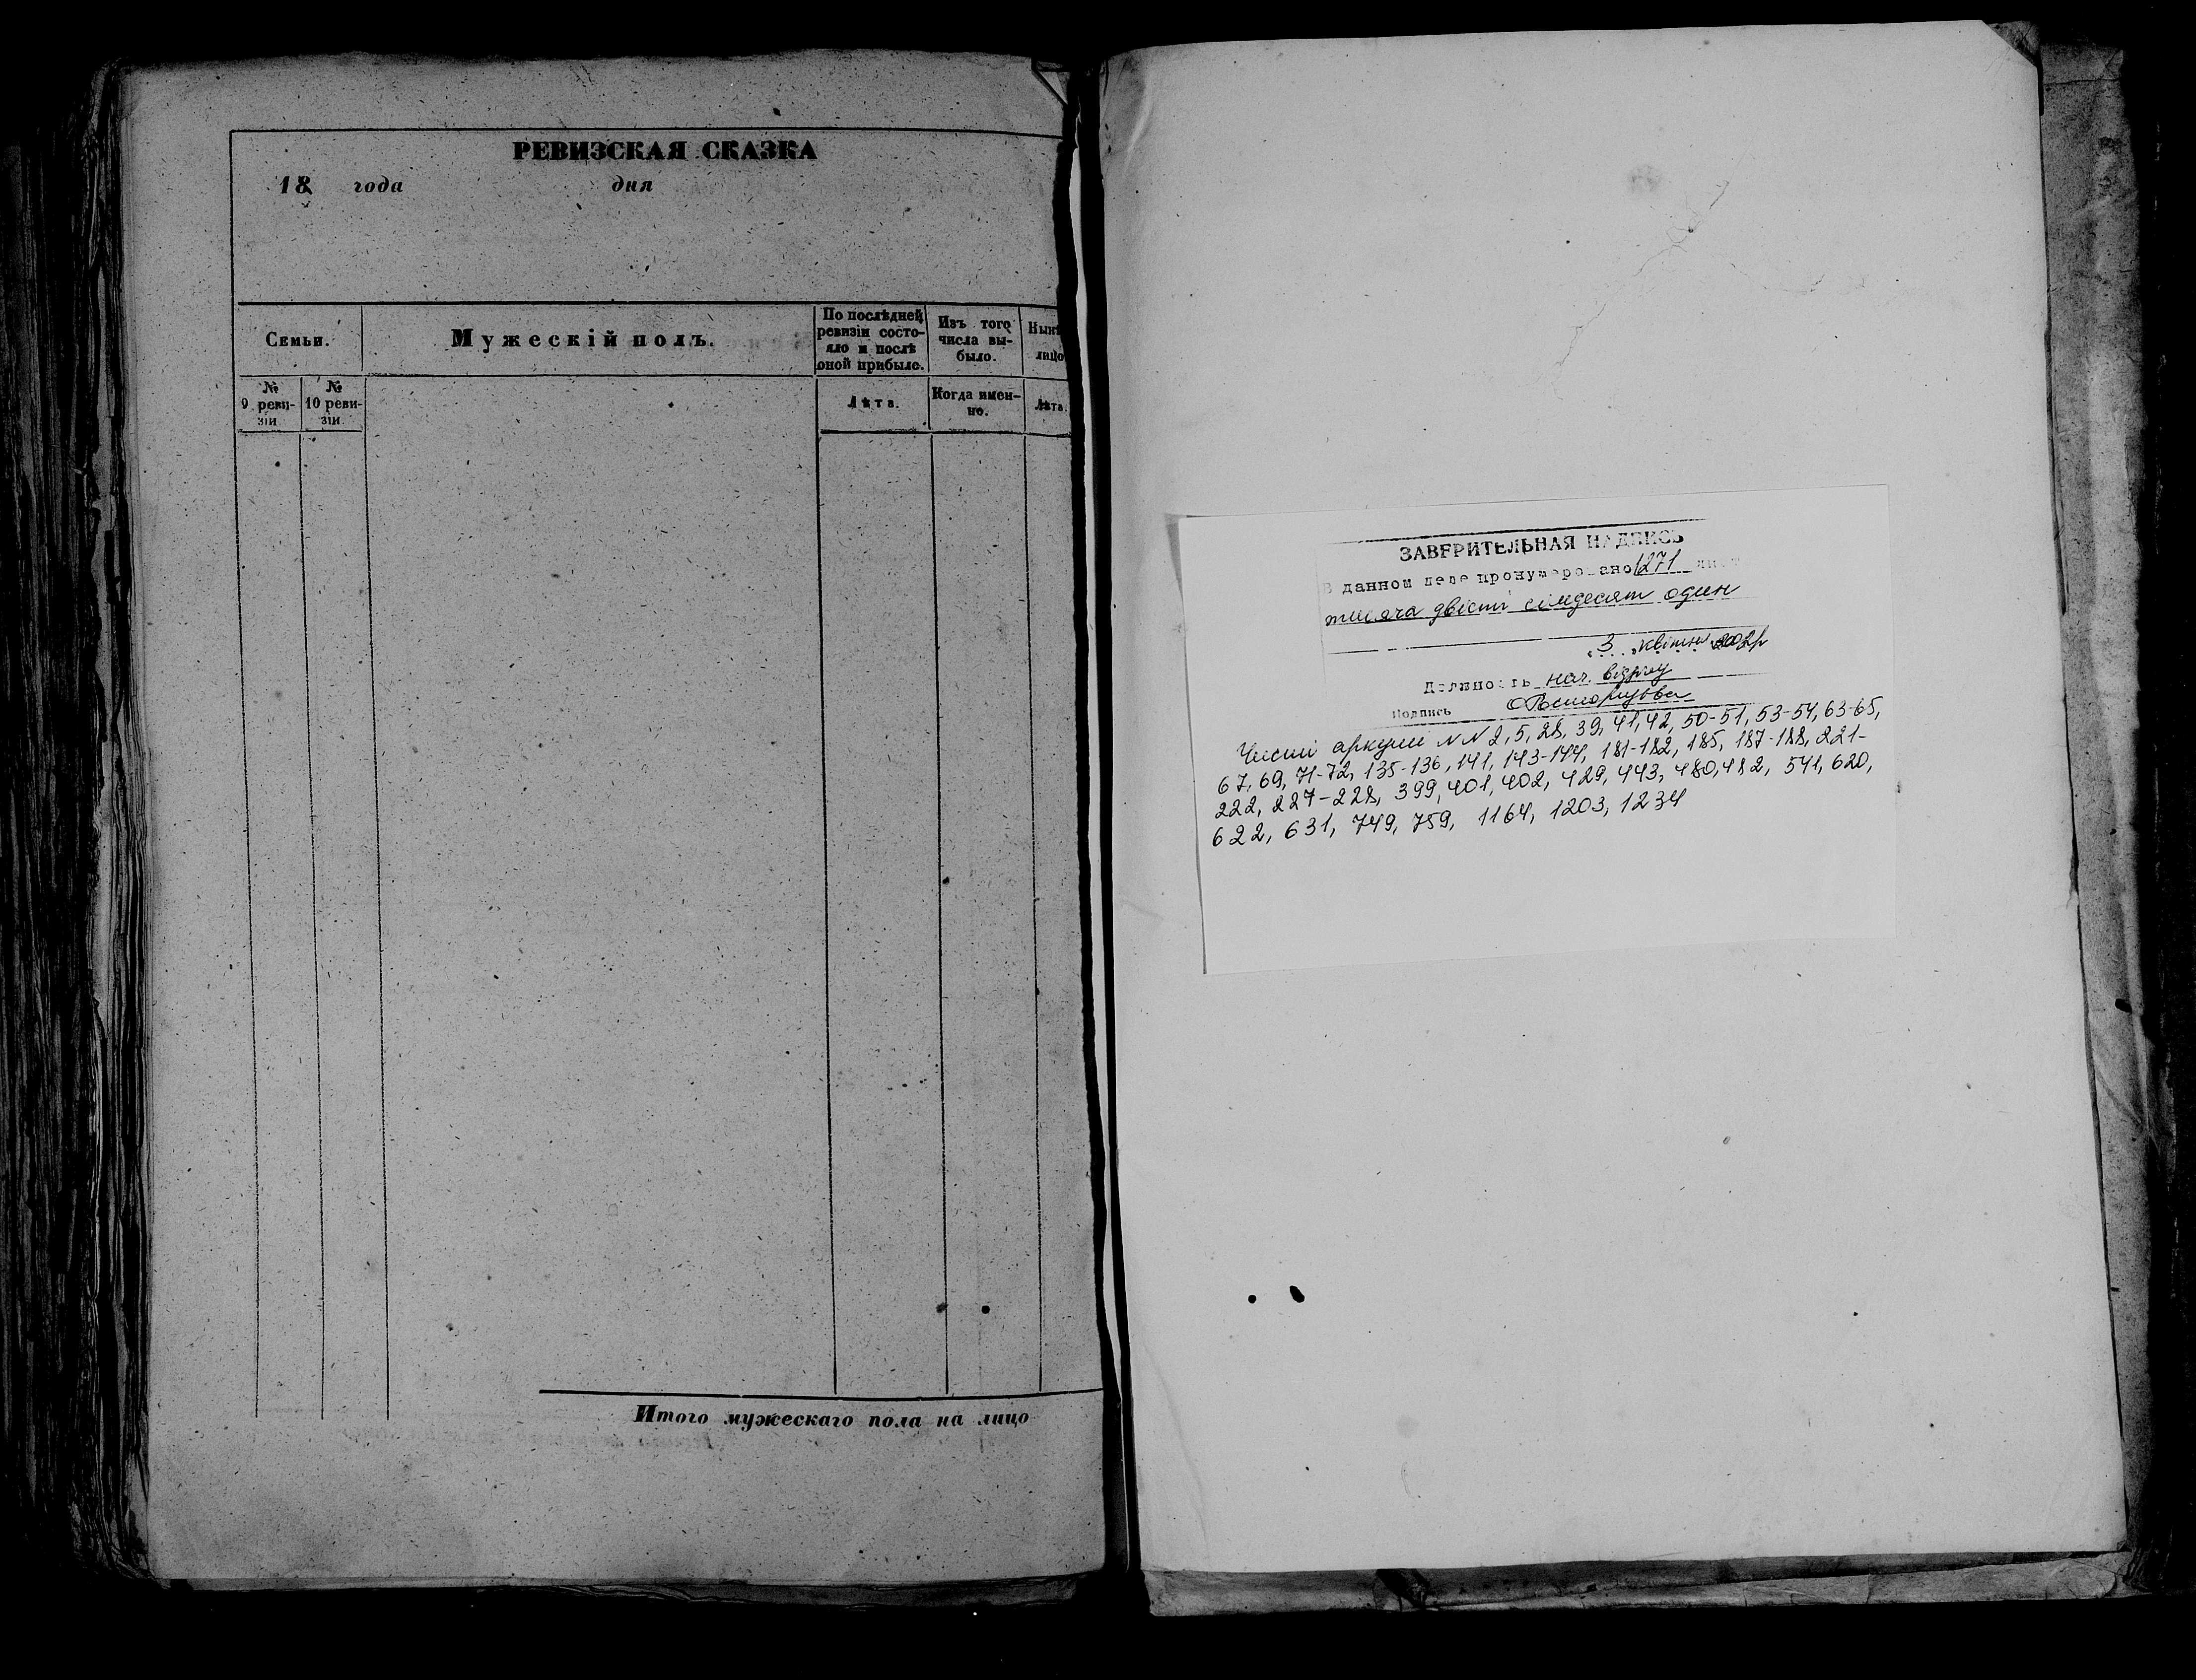 РЕВИЗСКАЯ СКАЗКА
18 года дня
Семьи.
Мужескій полъ.
По послѣдней
ревизіи состо-
яло и послѣ
оной прибыло.
Изъ того
числа вы-
было.
лицо
№
9 реви-
зіи
№
10 реви-
зіи.
Лѣта.
Когда имен-
но.
Лѣта.
Итого мужескаго пола на лицо
ЗАВЕРИТЕЛЬНАЯ НАДПИСЬ
В данном деле пронумеровано 1271
тисяча двісті сімдесят один
3 квітня
Должность нач. відділу
Подпись
Чисті аркуші NN 2, 5, 28, 39, 41, 42, 50-51, 53-54, 63-65,
67, 69, 71-72, 135-136, 141, 143-144, 181-182, 185, 187-188, 221-
222, 227-228, 399, 401, 402, 429, 443, 480, 482, 541, 620,
622, 631, 749, 759, 1164, 1203, 1234